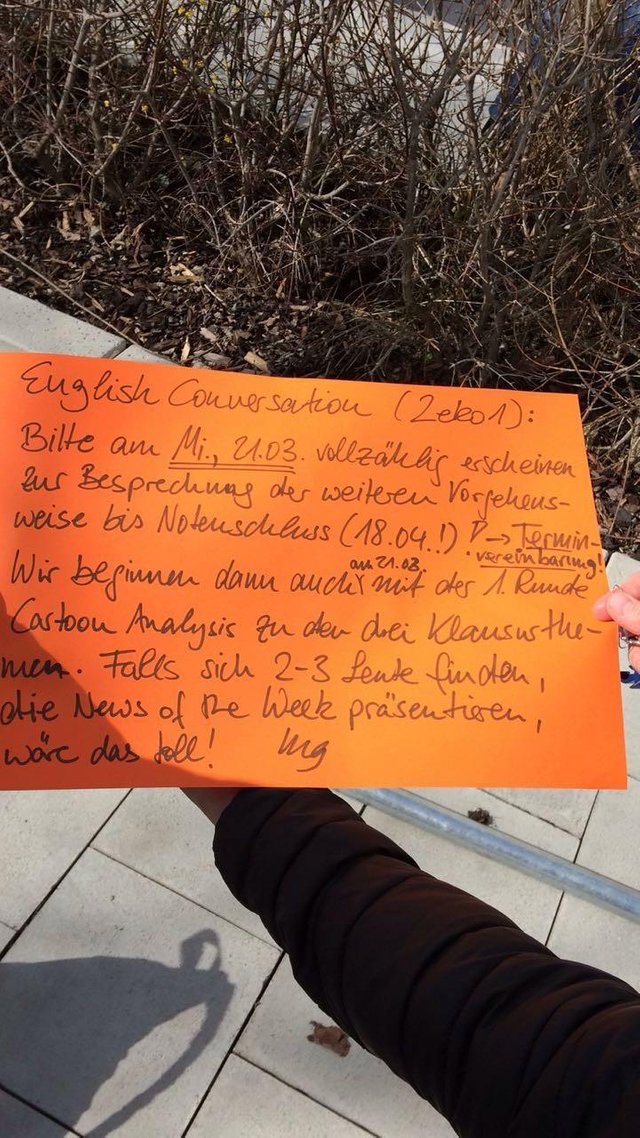 English Conversation (2eko1):
Bitte am Mi., 21.03. vollzählig erscheinen
zur Besprechung der weiteren Vorgehens-
weise bis Notenschluss (18.04.!) → Termin-
vereinbarung!
Wir beginnen dann auch am 21.03. mit der 1. Runde
Cartoon Analysis zu den drei Klausurthe-
men. Falls sich 2-3 Leute finden,
die News of the Week präsentieren,
wäre das toll!